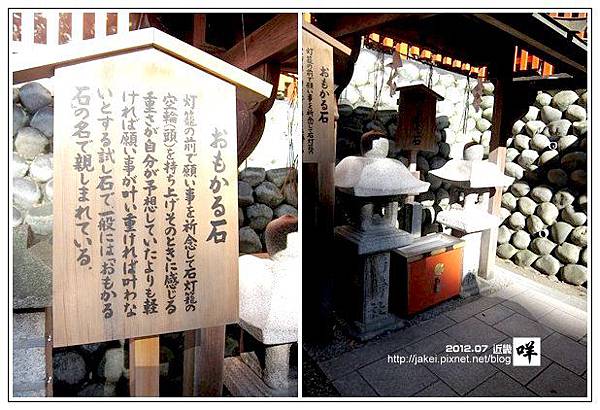 おもかる石
灯籠の前で願い事を祈念して石灯籠の
空輪(頭)を持ち上げそのときに感じる
重さが自分が予想していたよりも軽
ければ願い事が叶い重ければ叶わな
いとする試し石で一般には「おもかる
石」の名で親しまれている。
おもかる石
灯籠の前で願い事を祈念して石灯籠の
2012.07 近畿
咩
http://jakei.pixnet.net/blog